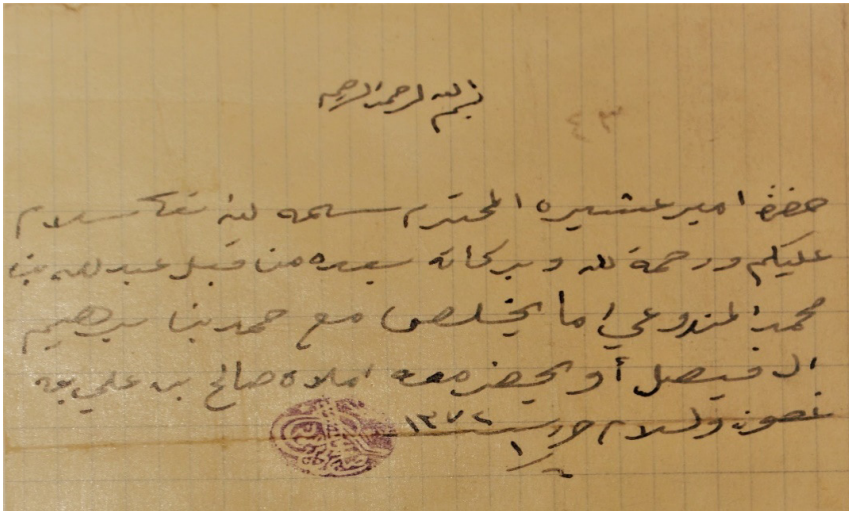 بسم الله الرحمن الرحيم
٤٣
حضرة امير عشيره المحترم سلمه الله تعالى سلام
عليكم ورحمة الله وبركاته بعده من قبل عبدالله بن
محمد المندوعي اما يخلص مع حمد بن ابرهيم
الفيصل أو يحضر معه املاه صالح بن علي بن
غصون والسلام حرر سنة ١٣٧٢